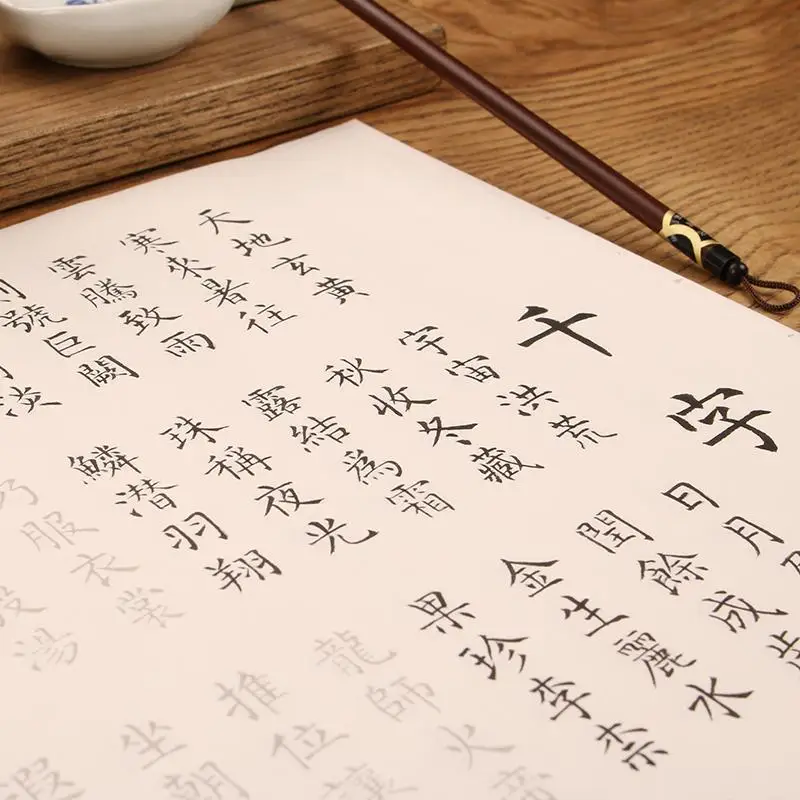 千字
天地玄黃
宇宙洪荒
日月
寒來暑往
秋收冬藏
閏餘成歲
雲騰致雨
露結爲霜
金生麗水
號巨闕
珠稱夜光
果珍李柰
淡
鱗潛羽翔
龍師火帝
服衣裳
推位讓
湯
坐朝